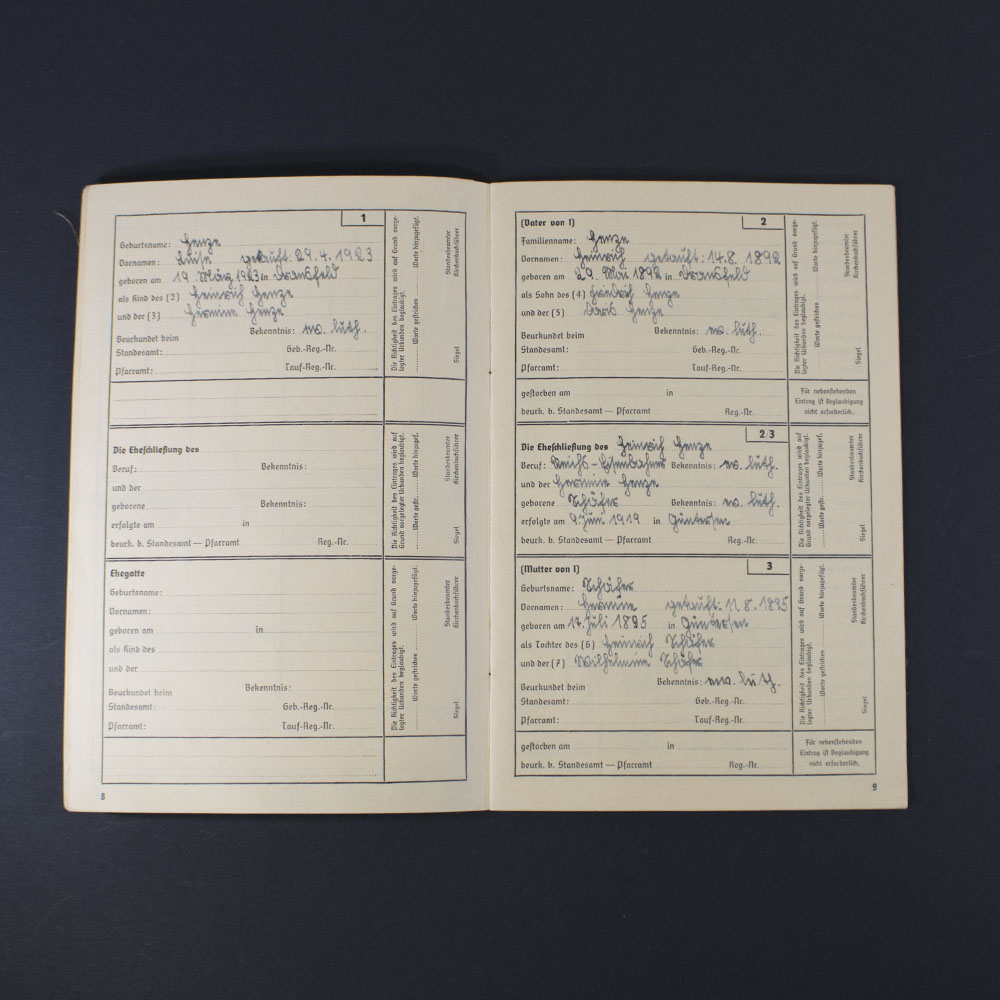 1
Geburtsname: Henze
Vornamen: Luise getauft: 29.4.1923
geboren am 19. März 1923 in Dransfeld
als Kind des (2) Heinrich Henze
und der (3) Hermine Henze
Bekenntnis: ev. luth.
Beurkundet beim
Standesamt: Geb.-Reg.-Nr.
Pfarramt: Tauf-Reg.-Nr.
Die Richtigkeit des Eintrages wird auf Grund vorge-
legter Urkunden beglaubigt.
Worte gestrichen Worte hinzugefügt.
Siegel Standesbeamter
Kirchenbuchführer
Die Eheschließung des
Beruf: Bekenntnis:
und der
geborene Bekenntnis:
erfolgte am in
beurk. b. Standesamt — Pfarramt Reg.-Nr.
Die Richtigkeit des Eintrages wird auf
Grund vorgelegter Urkunden beglaubigt.
Worte gestr. Worte hinzugef.
Siegel Standesbeamter
Kirchenbuchführer
Ehegatte
Geburtsname:
Vornamen:
geboren am in
als Kind des
und der
Bekenntnis:
Beurkundet beim
Standesamt: Geb.-Reg.-Nr.
Pfarramt: Tauf-Reg.-Nr.
Die Richtigkeit des Eintrages wird auf Grund vorge-
legter Urkunden beglaubigt.
Worte gestrichen Worte hinzugefügt.
Siegel Standesbeamter
Kirchenbuchführer
8
(Vater von 1) 2
Familienname: Henze
Vornamen: Heinrich getauft: 14.8.1892
geboren am 29. Mai 1892 in Dransfeld
als Sohn des (4) Friedrich Henze
und der (5) Doris Henze
Bekenntnis: ev. luth.
Beurkundet beim
Standesamt: Geb.-Reg.-Nr.
Pfarramt: Tauf-Reg.-Nr.
Die Richtigkeit des Eintrages wird auf Grund vorge-
legter Urkunden beglaubigt.
Worte gestrichen Worte hinzugefügt.
Siegel Standesbeamter
Kirchenbuchführer
gestorben am in
beurk. b. Standesamt — Pfarramt Reg.-Nr.
Für nebenstehenden
Eintrag ist Beglaubigung
nicht erforderlich.
2/3
Die Eheschließung des Heinrich Henze
Beruf: Reichs-Eisenbahner Bekenntnis: ev. luth.
und der Hermine Henze
geborene Schäfer Bekenntnis: ev. luth.
erfolgte am 9. Juni 1919 in Güntersen
beurk. b. Standesamt — Pfarramt Reg.-Nr.
Die Richtigkeit des Eintrages wird auf
Grund vorgelegter Urkunden beglaubigt.
Worte gestr. Worte hinzugef.
Siegel Standesbeamter
Kirchenbuchführer
(Mutter von 1) 3
Geburtsname: Schäfer
Vornamen: Hermine getauft: 11.8.1895
geboren am 17. Juli 1895 in Güntersen
als Tochter des (6) Heinrich Schäfer
und der (7) Wilhelmine Schäfer
Bekenntnis: ev. luth.
Beurkundet beim
Standesamt: Geb.-Reg.-Nr.
Pfarramt: Tauf-Reg.-Nr.
Die Richtigkeit des Eintrages wird auf Grund vorge-
legter Urkunden beglaubigt.
Worte gestrichen Worte hinzugefügt.
Siegel Standesbeamter
Kirchenbuchführer
gestorben am in
beurk. b. Standesamt — Pfarramt Reg.-Nr.
Für nebenstehenden
Eintrag ist Beglaubigung
nicht erforderlich.
9